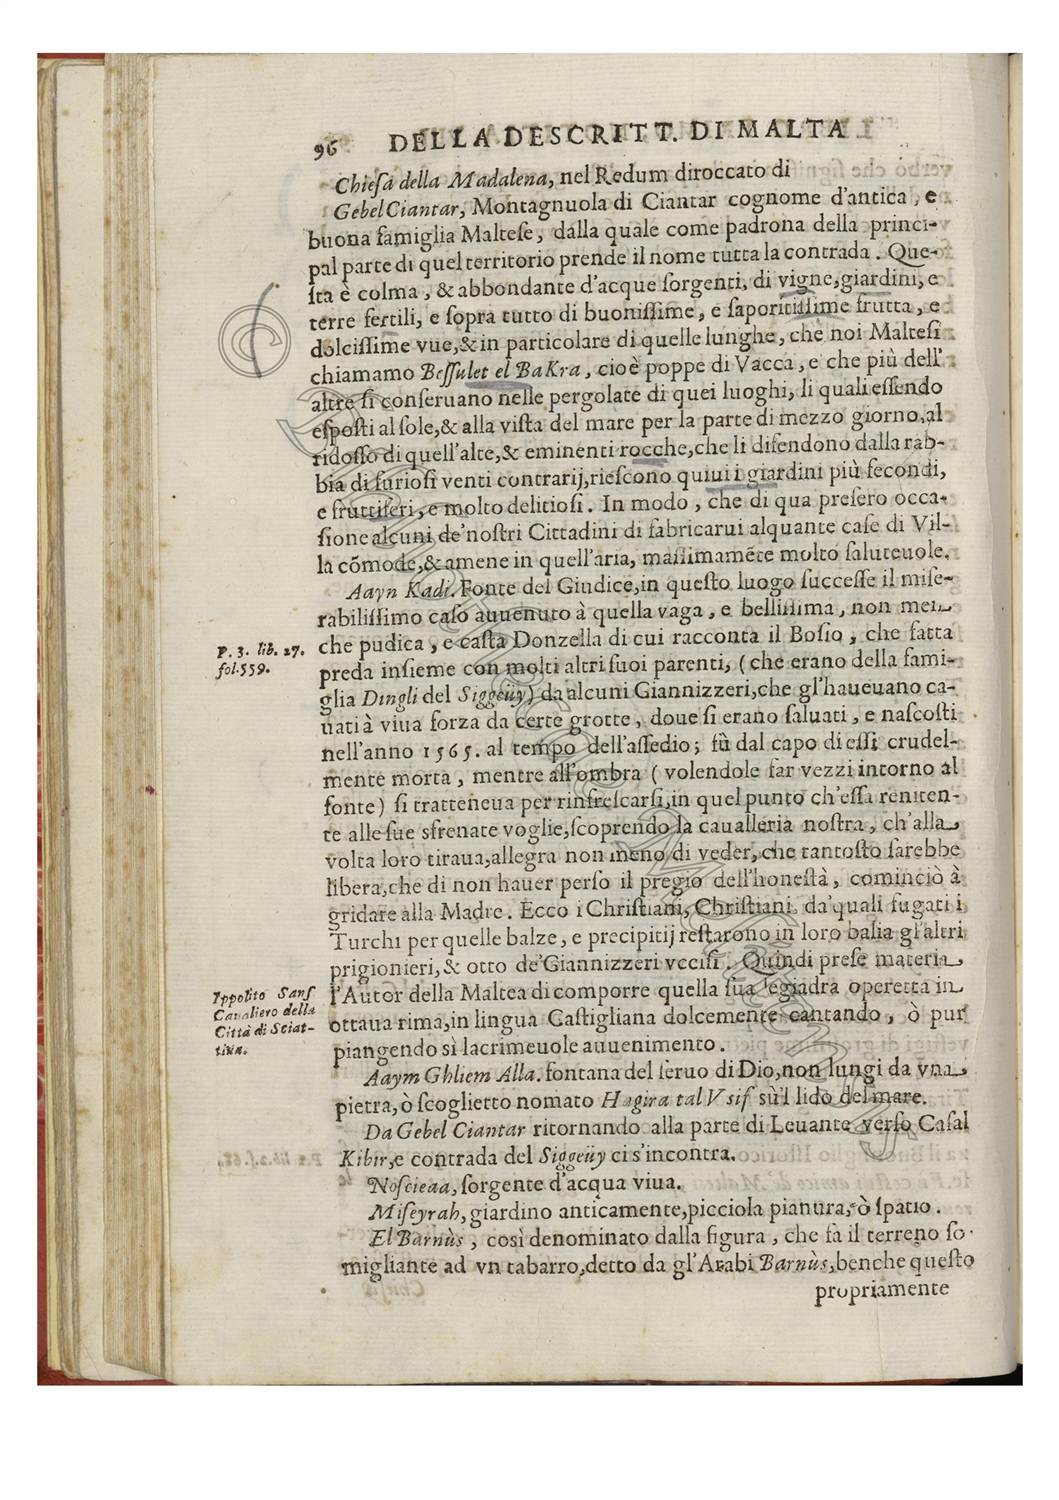 96 DELLA DESCRITT. DI MALTA
Chieſa della Madalena, nel Redum diroccato di
Gebel Ciantar, Montagnuola di Ciantar cognome d'antica, e
buona famiglia Malteſe, dalla quale come padrona della princi-
pal parte di quel territorio prende il nome tutta la contrada. Que-
ſta è colma, & abbondante d'acque ſorgenti, di vigne, giardini, e
terre fertili, e ſopra tutto di buoniſſime, e ſaporitiſſime frutta, e
dolciſſime vue, & in particolare di quelle lunghe, che noi Malteſi
chiamamo Beſſulet el BaKra, cioè poppe di Vacca, e che più dell'
altre ſi conſeruano nelle pergolate di quei luoghi, li quali eſſendo
eſpoſti al ſole, & alla viſta del mare per la parte di mezzo giorno, al
ridoſſo di quell'alte, & eminenti rocche, che li difendono dalla rab-
bia di furioſi venti contrarij, rieſcono quiui i giardini più fecondi,
e fruttiferi, e molto delitioſi. In modo, che di qua preſero occa-
ſione alcuni de' noſtri Cittadini di fabricarui alquante caſe di Vil-
la cōmode, & amene in quell'aria, maſſimamēte molto ſaluteuole.
Aayn Kadi. Fonte del Giudice, in queſto luogo ſucceſſe il miſe-
rabiliſſimo caſo auuenuto à quella vaga, e belliſſima, non men
che pudica, e caſta Donzella di cui racconta il Boſio, che fatta
P. 3. lib. 27.
fol. 559.
preda inſieme con molti altri ſuoi parenti, (che erano della fami-
glia Dingli del Siggeüy) da alcuni Giannizzeri, che gl'haueuano ca-
uati à viua forza da certe grotte, doue ſi erano ſaluati, e naſcoſti
nell'anno 1565. al tempo dell'aſſedio; fù dal capo di eſſi crudel-
mente morta, mentre all'ombra (volendole far vezzi intorno al
fonte) ſi tratteneua per rinfreſcarſi, in quel punto ch'eſſa reniten-
te alle ſue sfrenate voglie, ſcoprendo la caualleria noſtra, ch'alla
volta loro tiraua, allegra non meno di veder, che tantoſto ſarebbe
libera, che di non hauer perſo il pregio dell'honeſtà, cominciò à
gridare alla Madre. Ecco i Chriſtiani, Chriſtiani. da' quali fugati i
Turchi per quelle balze, e precipitij reſtarono in loro balia gl'altri
prigionieri, & otto de' Giannizzeri vcciſi. Quindi preſe materia
Ippolito Sanſ
Caualiero della
Città di Sciat-
tiua.
l'Autor della Maltea di comporre quella ſua legiadra operetta in
ottaua rima, in lingua Caſtigliana dolcemente cantando, ò pur
piangendo sì lacrimeuole auuenimento.
Aaym Ghliem Alla. fontana del ſeruo di Dio, non lungi da vna
pietra, ò ſcoglietto nomato Hagira tal Vsif sù'l lido del mare.
Da Gebel Ciantar ritornando alla parte di Leuante verſo Caſal
Kibir, e contrada del Siggeüy ci s'incontra.
Noſcieaa, ſorgente d'acqua viua.
Miſeyrah, giardino anticamente, picciola pianura, ò ſpatio.
El Barnùs, così denominato dalla figura, che fà il terreno ſo-
migliante ad vn tabarro, detto da gl'Arabi Barnùs, benche queſto
propriamente